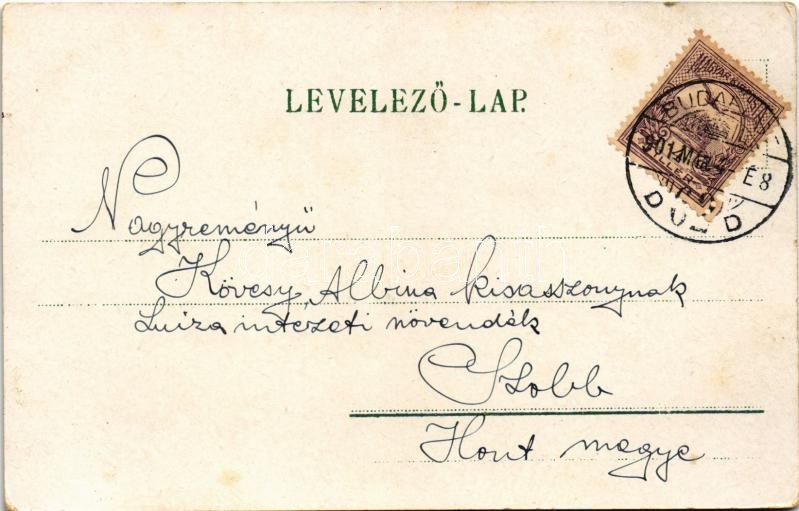 LEVELEZŐ-LAP.
MAGYAR
BUDAPE
901 MÁJ
É8
D
Nagyreményű
Kövesy Albina kisasszonynak
Luiza intézeti növendék
Szobb
Hont megye